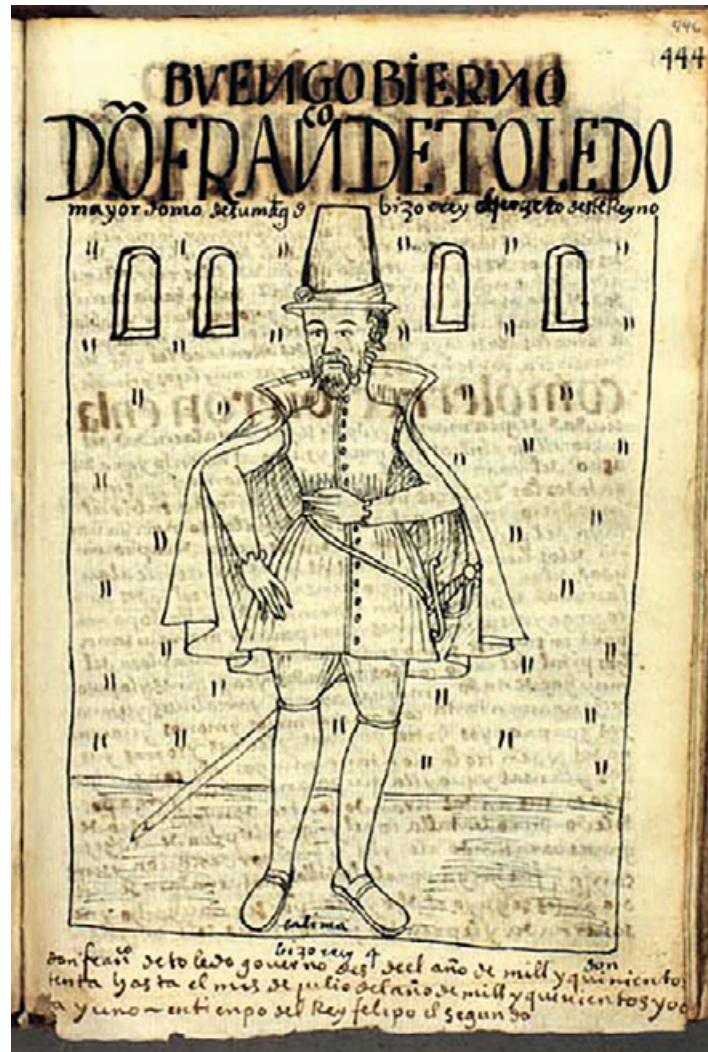 446
444
BVEN GOBIERNO
DÕ FRANco DE TOLEDO
mayordomo de su mag d bizorrey deste Reyno
en lima
bizorrey q
don franco de toledo governo desdel año de mill y quinientos
tenta hasta el mes de julio del año de mill y quinientos y och
a y uno – en tienpo del Rey felipo el segundo
don